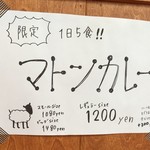 限定
1日5食!!
マトンカレー
スモールsize
1080yen
ビッグsize
1480yen
レギュラーsize
1200yen